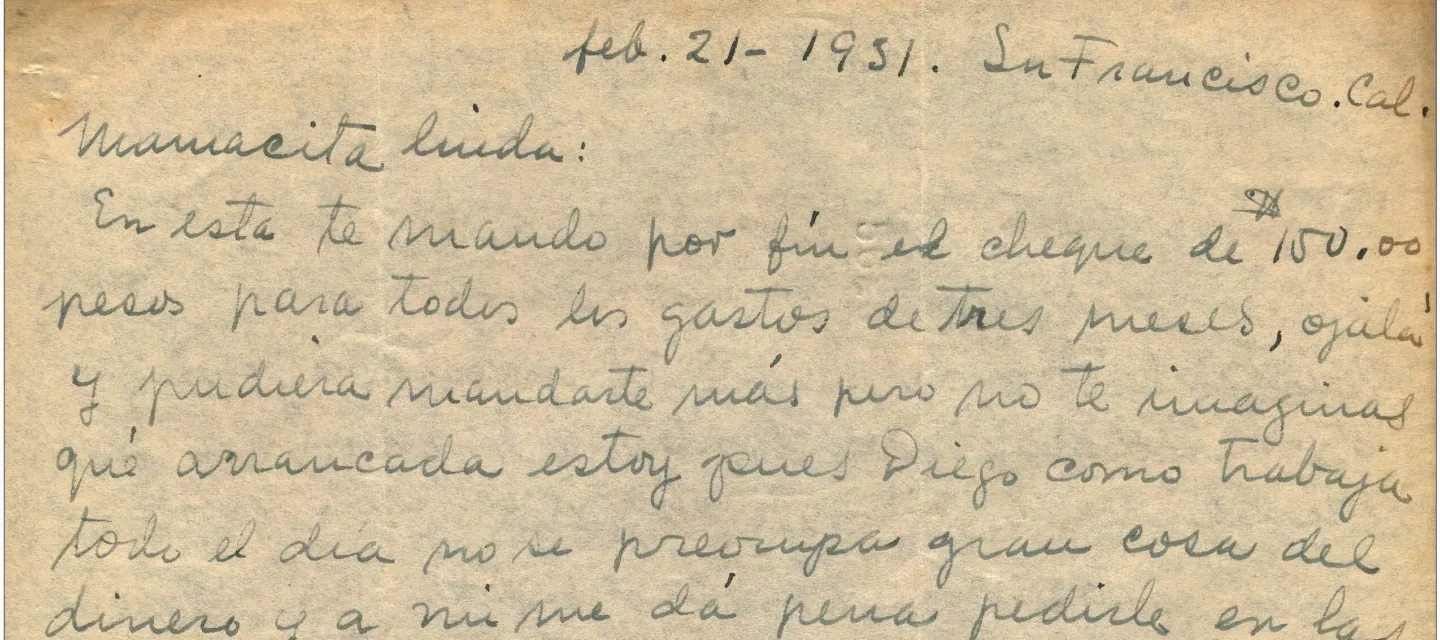 feb. 21- 1931. Sn Francisco. Cal.
Mamacita linda:
En esta te mando por fín el cheque de $150.00
pesos para todos los gastos de tres meses, ojalá
y pudiera mandarte más pero no te imaginas
qué arrancada estoy pues Diego como trabaja
todo el día no se preocupa gran cosa del
dinero y a mi me dá pena pedirle en las